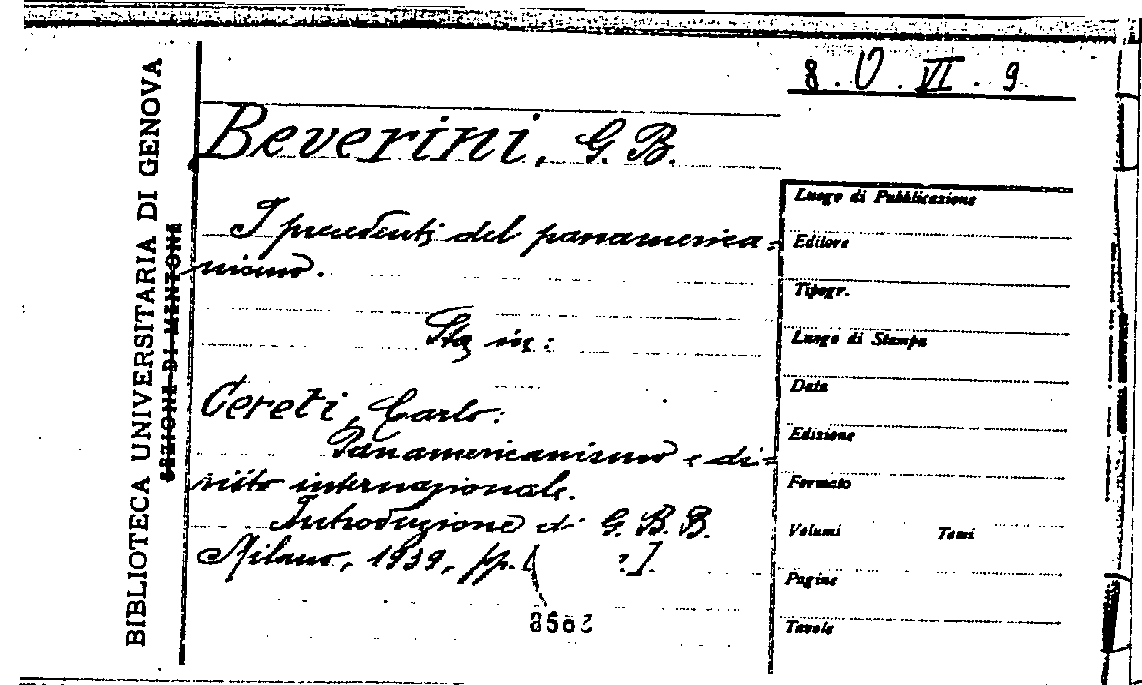 8. U. VI. 9
BIBLIOTECA UNIVERSITARIA DI GENOVA
SEZIONE DI MENTONE
Beverini, G. B.
I precedenti del panamerica=
nismo.
Sta in:
Cereti, Carlo:
Panamericanismo e di=
ritto internazionale.
Introduzione di G. B. B.
Milano, 1939, pp. [ ].
Luogo di Pubblicazione
Editore
Tipogr.
Luogo di Stampa
Data
Edizione
Formato
Volumi Tomi
Pagine
Tavole